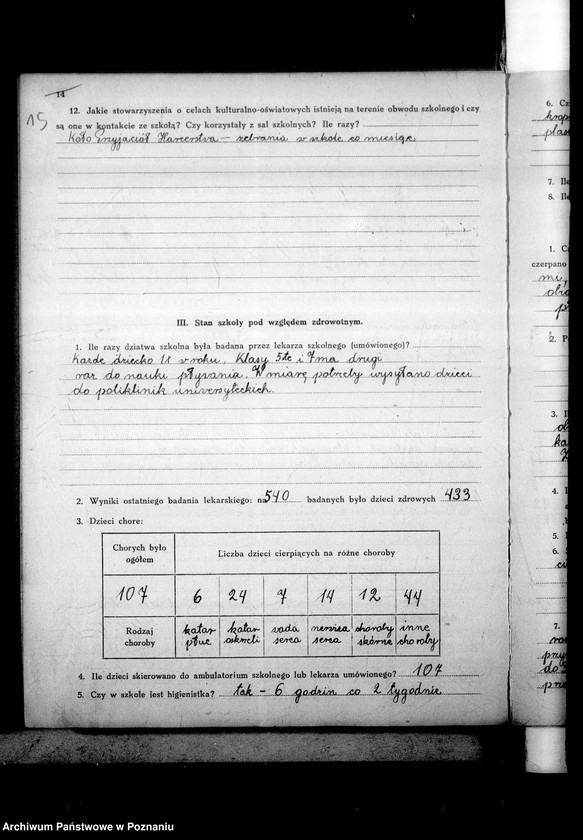 14
15
12. Jakie stowarzyszenia o celach kulturalno-oświatowych istnieją na terenie obwodu szkolnego i czy
są one w kontakcie ze szkołą? Czy korzystały z sal szkolnych? Ile razy?
Koło Przyjaciół Harcerstwa – zebrania w szkole co miesiąc.
III. Stan szkoły pod względem zdrowotnym.
1. Ile razy dziatwa szkolna była badana przez lekarza szkolnego (umówionego)?
Każde dziecko 1x w roku. Klasy 5te i 7ma drugi
raz do nauki pływania. W miarę potrzeby wysyłano dzieci
do poliklinik uniwersyteckich.
2. Wyniki ostatniego badania lekarskiego: na 540 badanych było dzieci zdrowych 433
3. Dzieci chore:
Chorych było ogółem
Liczba dzieci cierpiących na różne choroby
107 6 24 7 14 12 44
Rodzaj choroby
katar płuc
katar oskrzeli
wada serca
nerwica serca
choroby skórne
inne choroby
4. Ile dzieci skierowano do ambulatorium szkolnego lub lekarza umówionego? 107
5. Czy w szkole jest higienistka? tak – 6 godzin co 2 tygodnie
6.
7. Ile
8. Ile
1.
czerpano
mi,
2.
3.
4.
5.
6.
7.
do
Archiwum Państwowe w Poznaniu